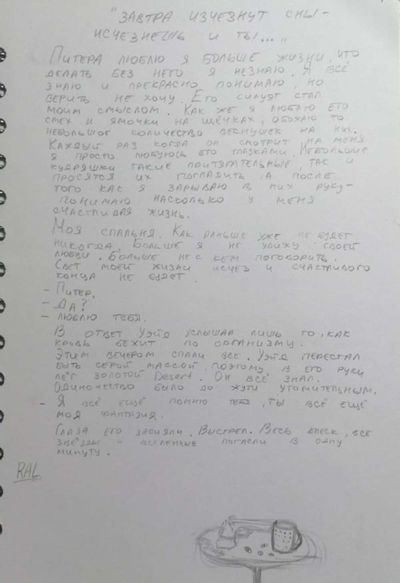 "ЗАВТРА ИЗЧЕЗНУТ СНЫ -
ИСЧЕЗНЕШЬ И ТЫ..."
ПИТЕРА ЛЮБЛЮ Я БОЛЬШЕ ЖИЗНИ, ЧТО
ДЕЛАТЬ БЕЗ НЕГО Я НЕЗНАЮ. Я ВСЁ
ЗНАЮ И ПРЕКРАСНО ПОНИМАЮ, НО
ВЕРИТЬ НЕ ХОЧУ. ЕГО СИЛУЭТ СТАЛ
МОИМ СМЫСЛОМ. КАК ЖЕ Я ЛЮБЛЮ ЕГО
СМЕХ И ЯМОЧКИ НА ЩЁЧКАХ, ОБОЖАЮ ТО
НЕБОЛЬШОЕ КОЛИЧЕСТВО ВЕСНУШЕК НА НИХ.
КАЖДЫЙ РАЗ КОГДА ОН СМОТРИТ НА МЕНЯ
Я ПРОСТО ЛЮБУЮСЬ ЕГО ГЛАЗКАМИ. НЕБОЛЬШИЕ
КУДРЯШКИ ТАКИЕ ПРИТЯГАТЕЛЬНЫЕ, ТАК И
ПРОСЯТСЯ ИХ ПОГЛАДИТЬ, А ПОСЛЕ
ТОГО КАК Я ЗАРЫВАЮ В НИХ РУКУ-
ПОНИМАЮ НАСКОЛЬКО У МЕНЯ
СЧАСТЛИВАЯ ЖИЗНЬ.
МОЯ СПАЛЬНЯ. КАК РАНЬШЕ УЖЕ НЕ БУДЕТ
НИКОГДА. БОЛЬШЕ Я НЕ УВИЖУ СВОЕЙ
ЛЮБВИ. БОЛЬШЕ НЕ С КЕМ ПОГОВОРИТЬ.
СВЕТ МОЕЙ ЖИЗНИ ИСЧЕЗ И СЧАСТЛИВОГО
КОНЦА НЕ БУДЕТ.
- ПИТЕР.
- ДА?
- ЛЮБЛЮ ТЕБЯ.
В ОТВЕТ УЭЙД УСЛЫШАЛ ЛИШЬ ТО, КАК
КРОВЬ БЕЖИТ ПО ОРГАНИЗМУ.
ЭТИМ ВЕЧЕРОМ СПАЛИ ВСЕ. УЭЙД ПЕРЕСТАЛ
БЫТЬ СЕРОЙ МАССОЙ, ПОЭТОМУ В ЕГО РУКИ
ЛЁГ ЗОЛОТОЙ DESERT. ОН ВСЁ ЗНАЛ.
ОДИНОЧЕСТВО БЫЛО ДО ЖУТИ УТОМИТЕЛЬНЫМ.
- Я ВСЁ ЕЩЁ ПОМНЮ ТЕБЯ, ТЫ ВСЁ ЕЩЁ
МОЯ ФАНТАЗИЯ.
ГЛАЗА ЕГО ЗАСИЯЛИ. ВЫСТРЕЛ. ВЕСЬ БЛЕСК, ВСЕ
ЗВЁЗДЫ И ВСЕЛЕННЫЕ ПОГАСЛИ В ОДНУ
МИНУТУ.
RAL